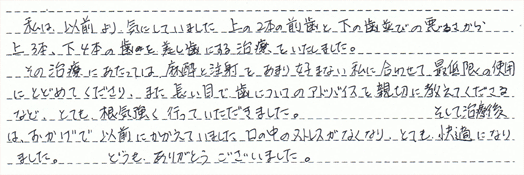 私は、以前より気にしていました 上の2本の前歯と下の歯並びの悪るさから
上3本、下4本の歯を差し歯にする治療をいたしました。
その治療にあたっては 麻酔と注射をあまり好まない私に合わせて 最低限の使用
にとどめてくださり、また長い目で歯についてのアドバイスを親切に教えてくださる
など、とても根気強く行っていただきました。 そして治療後
は、おかげで以前にかかえていました口の中のストレスがなくなり、とても快適になり
ました。 どうも ありがとう ございました。